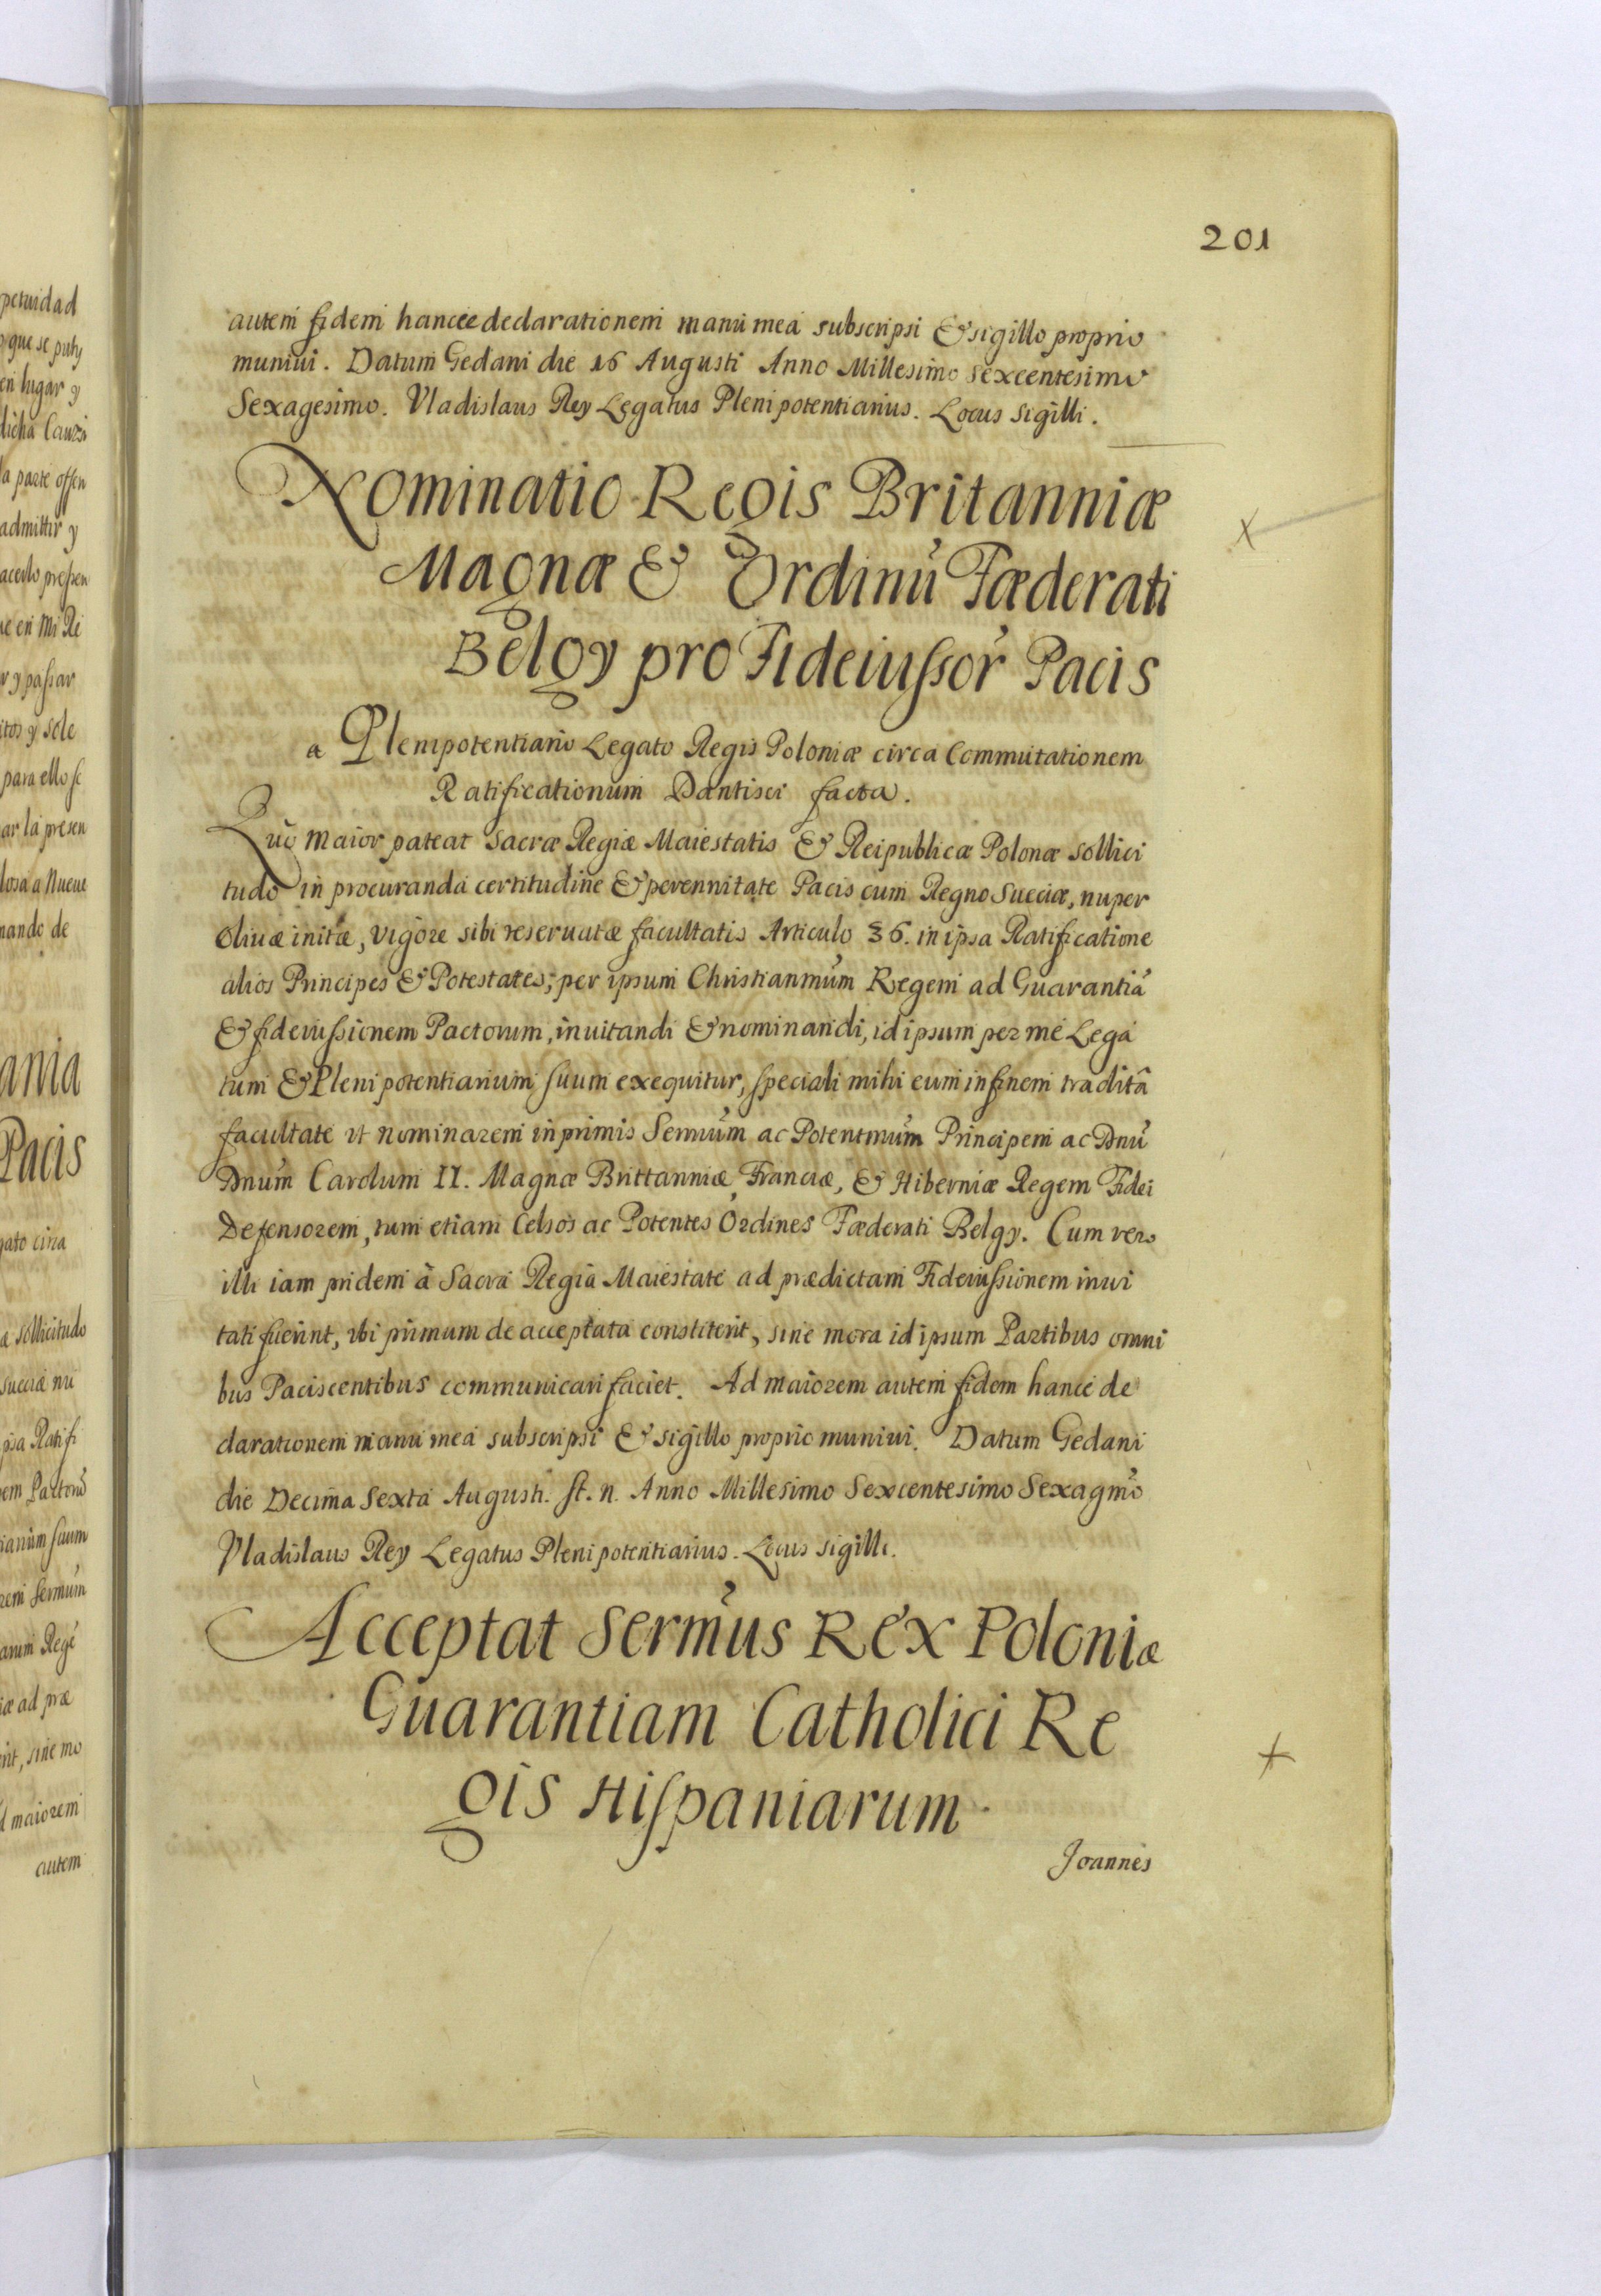 petuidad
que se puty
en lugar y
dicha Cauzi
la parte offen
admittir y
acerlo presen
ue en Mi Re
r y passar
itos y sole
para ello se
ar la presen
losa a Nueue
nando de
ania
Pacis
gato circa
a sollicitudo
Sueciæ nu
psa Ratifi
em Pactorũ
iarium suum
rem Sermũm
arum Regẽ
iæ ad præ
rint, sine mo
d maiorem
autem
201
autem fidem hancce declarationem manu mea subscripsi & sigillo proprio
muniui. Datum Gedani die 16 Augusti Anno Millesimo Sexcentesimo
Sexagesimo. Vladislaus Rey Legatus Plenipotentiarius. Locus Sigilli.
Nominatio Regis Britanniæ
Magnæ & Ordinũ Fæderati
Belgy pro Fideiussor̃ Pacis
a Plenipotentiario Legato Regis Poloniæ circa Commutationem
Ratificationum Dantisci facta.
Quò maior pateat Sacræ Regiæ Maiestatis & Reipublicæ Polonæ sollici
tudo in procuranda certitudine & perennitate Pacis cum Regno Sueciæ, nuper
Oliuæ initæ, vigore sibi reseruatæ facultatis Articulo 36. in ipsa Ratificatione
alios Principes & Potestates, per ipsum Christianmũm Regem ad Guarantiã
& fideiussionem Pactorum, inuitandi & nominandi, id ipsum per me Lega
tum & Plenipotentiarium suum exequitur, speciali mihi eum in finem traditâ
facultate vt nominarem in primis Sermũm ac Potentmũm Principem ac Dnũ
Dnũm Carolum II. Magnæ Brittanniæ, Franciæ, & Hiberniæ Regem Fidei
Defensorem, tum etiam Celsos ac Potentes Ordines Fæderati Belgy. Cum vero
illi iam pridem à Sacra Regia Maiestate ad prædictam Fideiussionem inui
tati fuerint, vbi primum de acceptata constiterit, sine mora id ipsum Partibus omni
bus Paciscentibus communicari faciet. Ad maiorem autem fidem hance de
clarationem manu mea subscripsi & sigillo proprio muniui. Datum Gedani
die Decima Sexta Augusti. st. n. Anno Millesimo Sexcentesimo Sexagmõ
Vladislaus Rey Legatus Plenipotentiarius. Locus sigilli.
Acceptat Sermũs Rex Poloniæ
Guarantiam Catholici Re
gis Hispaniarum.
Joannes